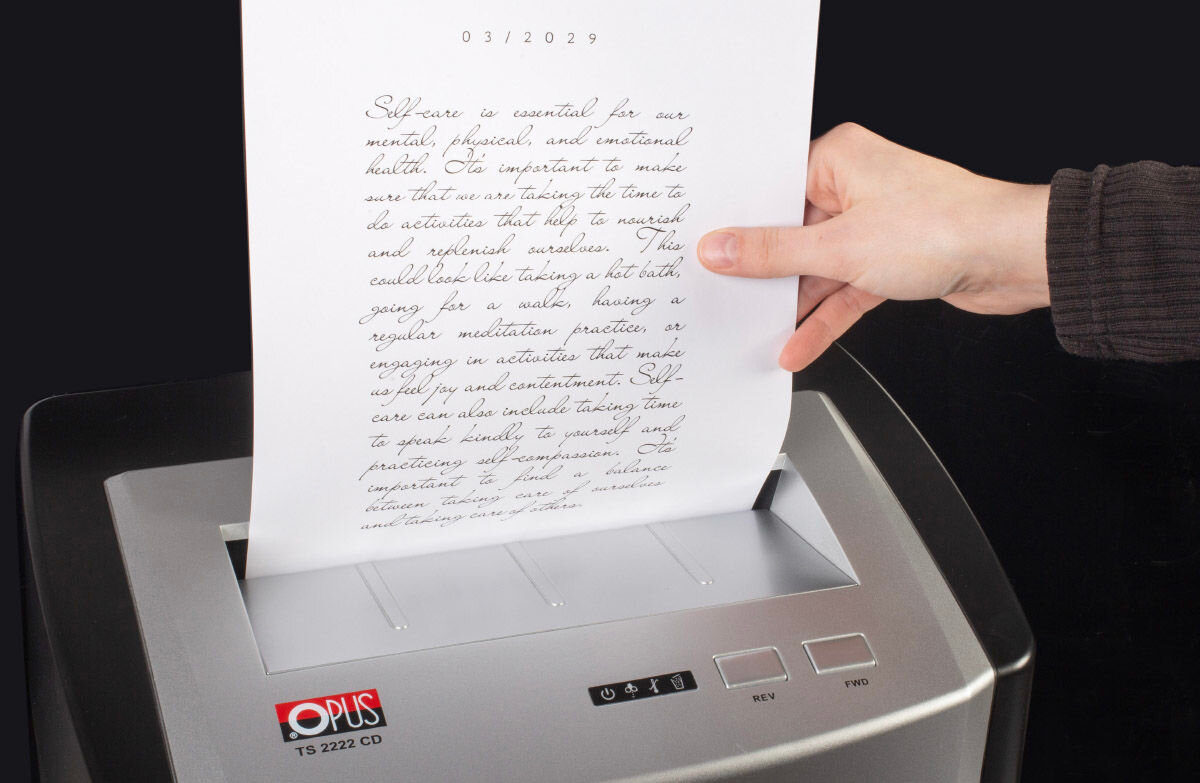 03/2029
Self-care is essential for our
mental, physical, and emotional
health. It's important to make
sure that we are taking the time to
do activities that help to nourish
and replenish ourselves. This
could look like taking a hot bath,
going for a walk, having a
regular meditation practice, or
engaging in activities that make
us feel joy and contentment. Self-
care can also include taking time
to speak kindly to yourself and
practicing self-compassion. It's
important to find a balance
between taking care of ourselves
and taking care of others.
REV
FWD
OPUS
®
TS 2222 CD